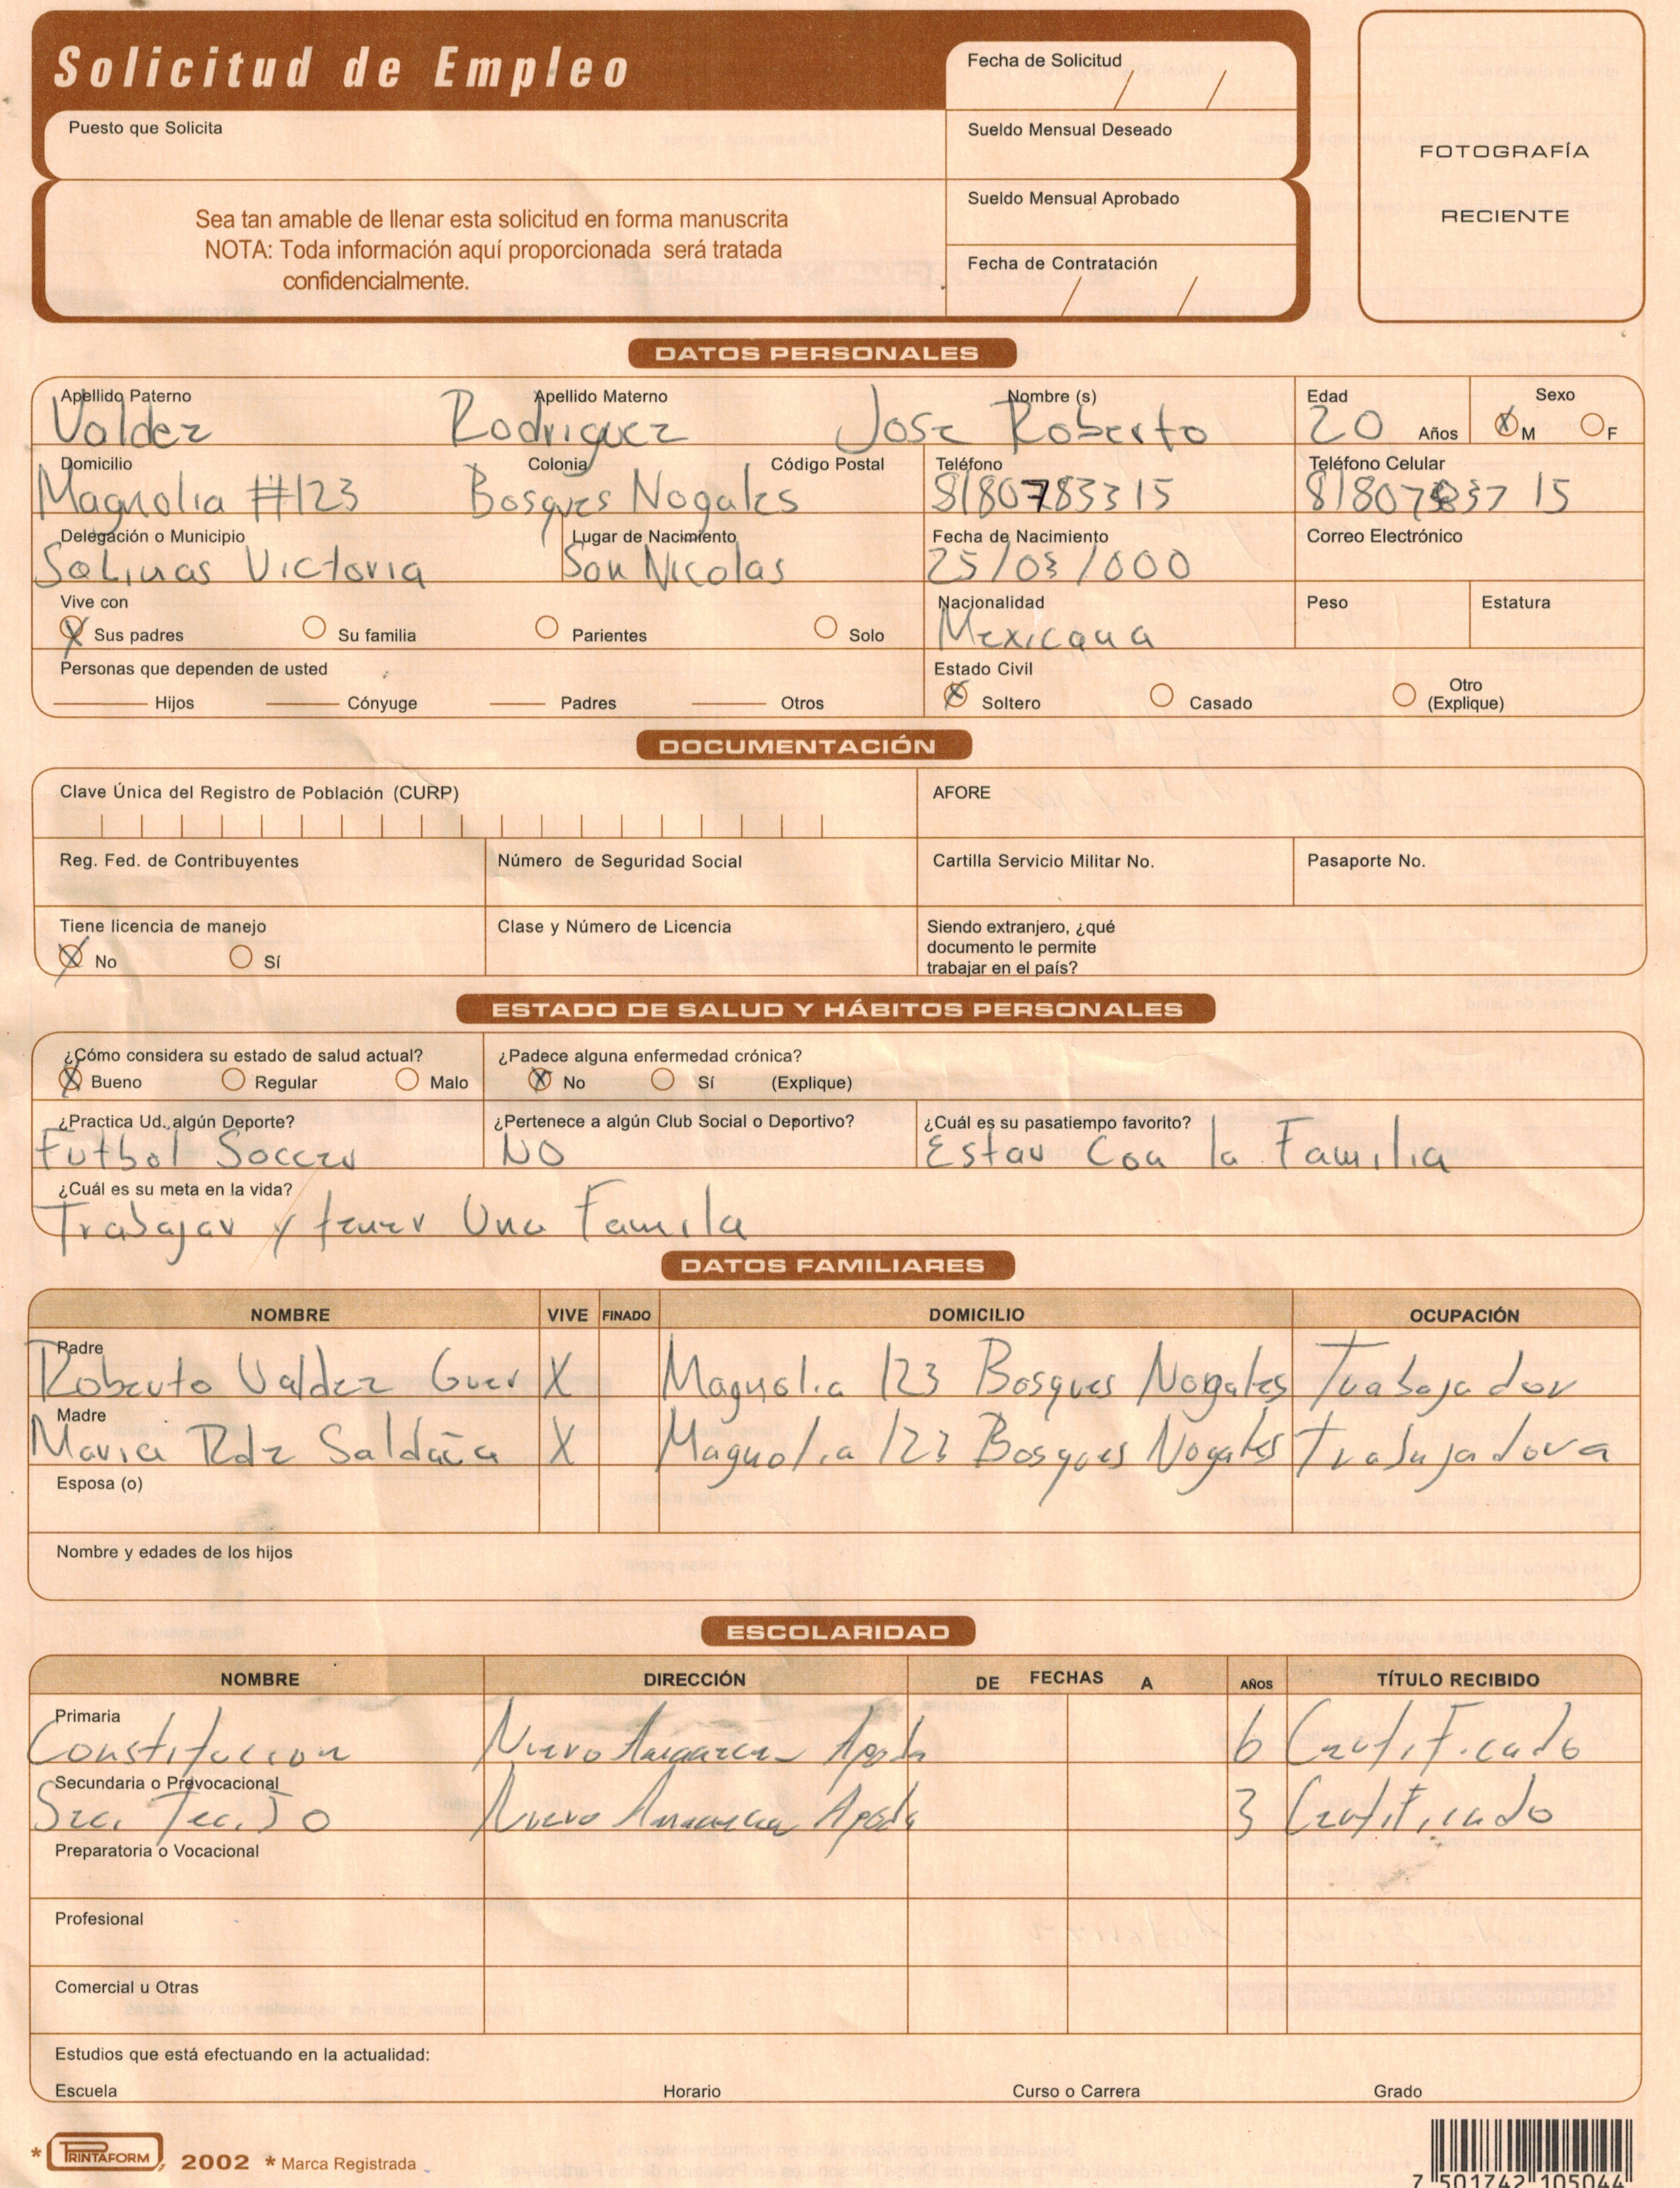 Solicitud de Empleo
Fecha de Solicitud / /
Puesto que Solicita
Sueldo Mensual Deseado
FOTOGRAFÍA
RECIENTE
Sueldo Mensual Aprobado
Sea tan amable de llenar esta solicitud en forma manuscrita
NOTA: Toda información aquí proporcionada será tratada
confidencialmente.
Fecha de Contratación / /
DATOS PERSONALES
Apellido Paterno Apellido Materno Nombre (s) Edad Sexo
Valdez Rodriguez Jose Roberto 20 Años X M F
Domicilio Colonia Código Postal Teléfono Teléfono Celular
Magnolia #123 Bosques Nogales 8180783315
Delegación o Municipio Lugar de Nacimiento Fecha de Nacimiento Correo Electrónico
Salinas Victoria San Nicolas 25/03/000
Vive con Nacionalidad Peso Estatura
X Sus padres Su familia Parientes Solo Mexicana
Personas que dependen de usted Estado Civil
Hijos Cónyuge Padres Otros X Soltero Casado Otro (Explique)
DOCUMENTACIÓN
Clave Única del Registro de Población (CURP) AFORE
Reg. Fed. de Contribuyentes Número de Seguridad Social Cartilla Servicio Militar No. Pasaporte No.
Tiene licencia de manejo Clase y Número de Licencia Siendo extranjero, ¿qué
documento le permite
X No Sí trabajar en el país?
ESTADO DE SALUD Y HÁBITOS PERSONALES
¿Cómo considera su estado de salud actual? ¿Padece alguna enfermedad crónica?
X Bueno Regular Malo X No Sí (Explique)
¿Practica Ud. algún Deporte? ¿Pertenece a algún Club Social o Deportivo? ¿Cuál es su pasatiempo favorito?
Futbol Soccer NO Estar Con la Familia
¿Cuál es su meta en la vida?
Trabajar y tener Una Famila
DATOS FAMILIARES
NOMBRE VIVE FINADO DOMICILIO OCUPACIÓN
Padre
Roberto Valdez Guer X Magnolia 123 Bosques Nogales Trabajador
Madre
Maria Rdz Saldaña X Magnolia 123 Bosques Nogales Trabajadora
Esposa (o)
Nombre y edades de los hijos
ESCOLARIDAD
NOMBRE DIRECCIÓN DE FECHAS A AÑOS TÍTULO RECIBIDO
Primaria
Constitucion Nuevo Amanecer Apoda 6 Certificado
Secundaria o Prevocacional
Sec. Tec. Nuevo Amanecer Apoda 3 Certificado
Preparatoria o Vocacional
Profesional
Comercial u Otras
Estudios que está efectuando en la actualidad:
Escuela Horario Curso o Carrera Grado
* PRINTAFORM 2002 * Marca Registrada
7 501742 105044